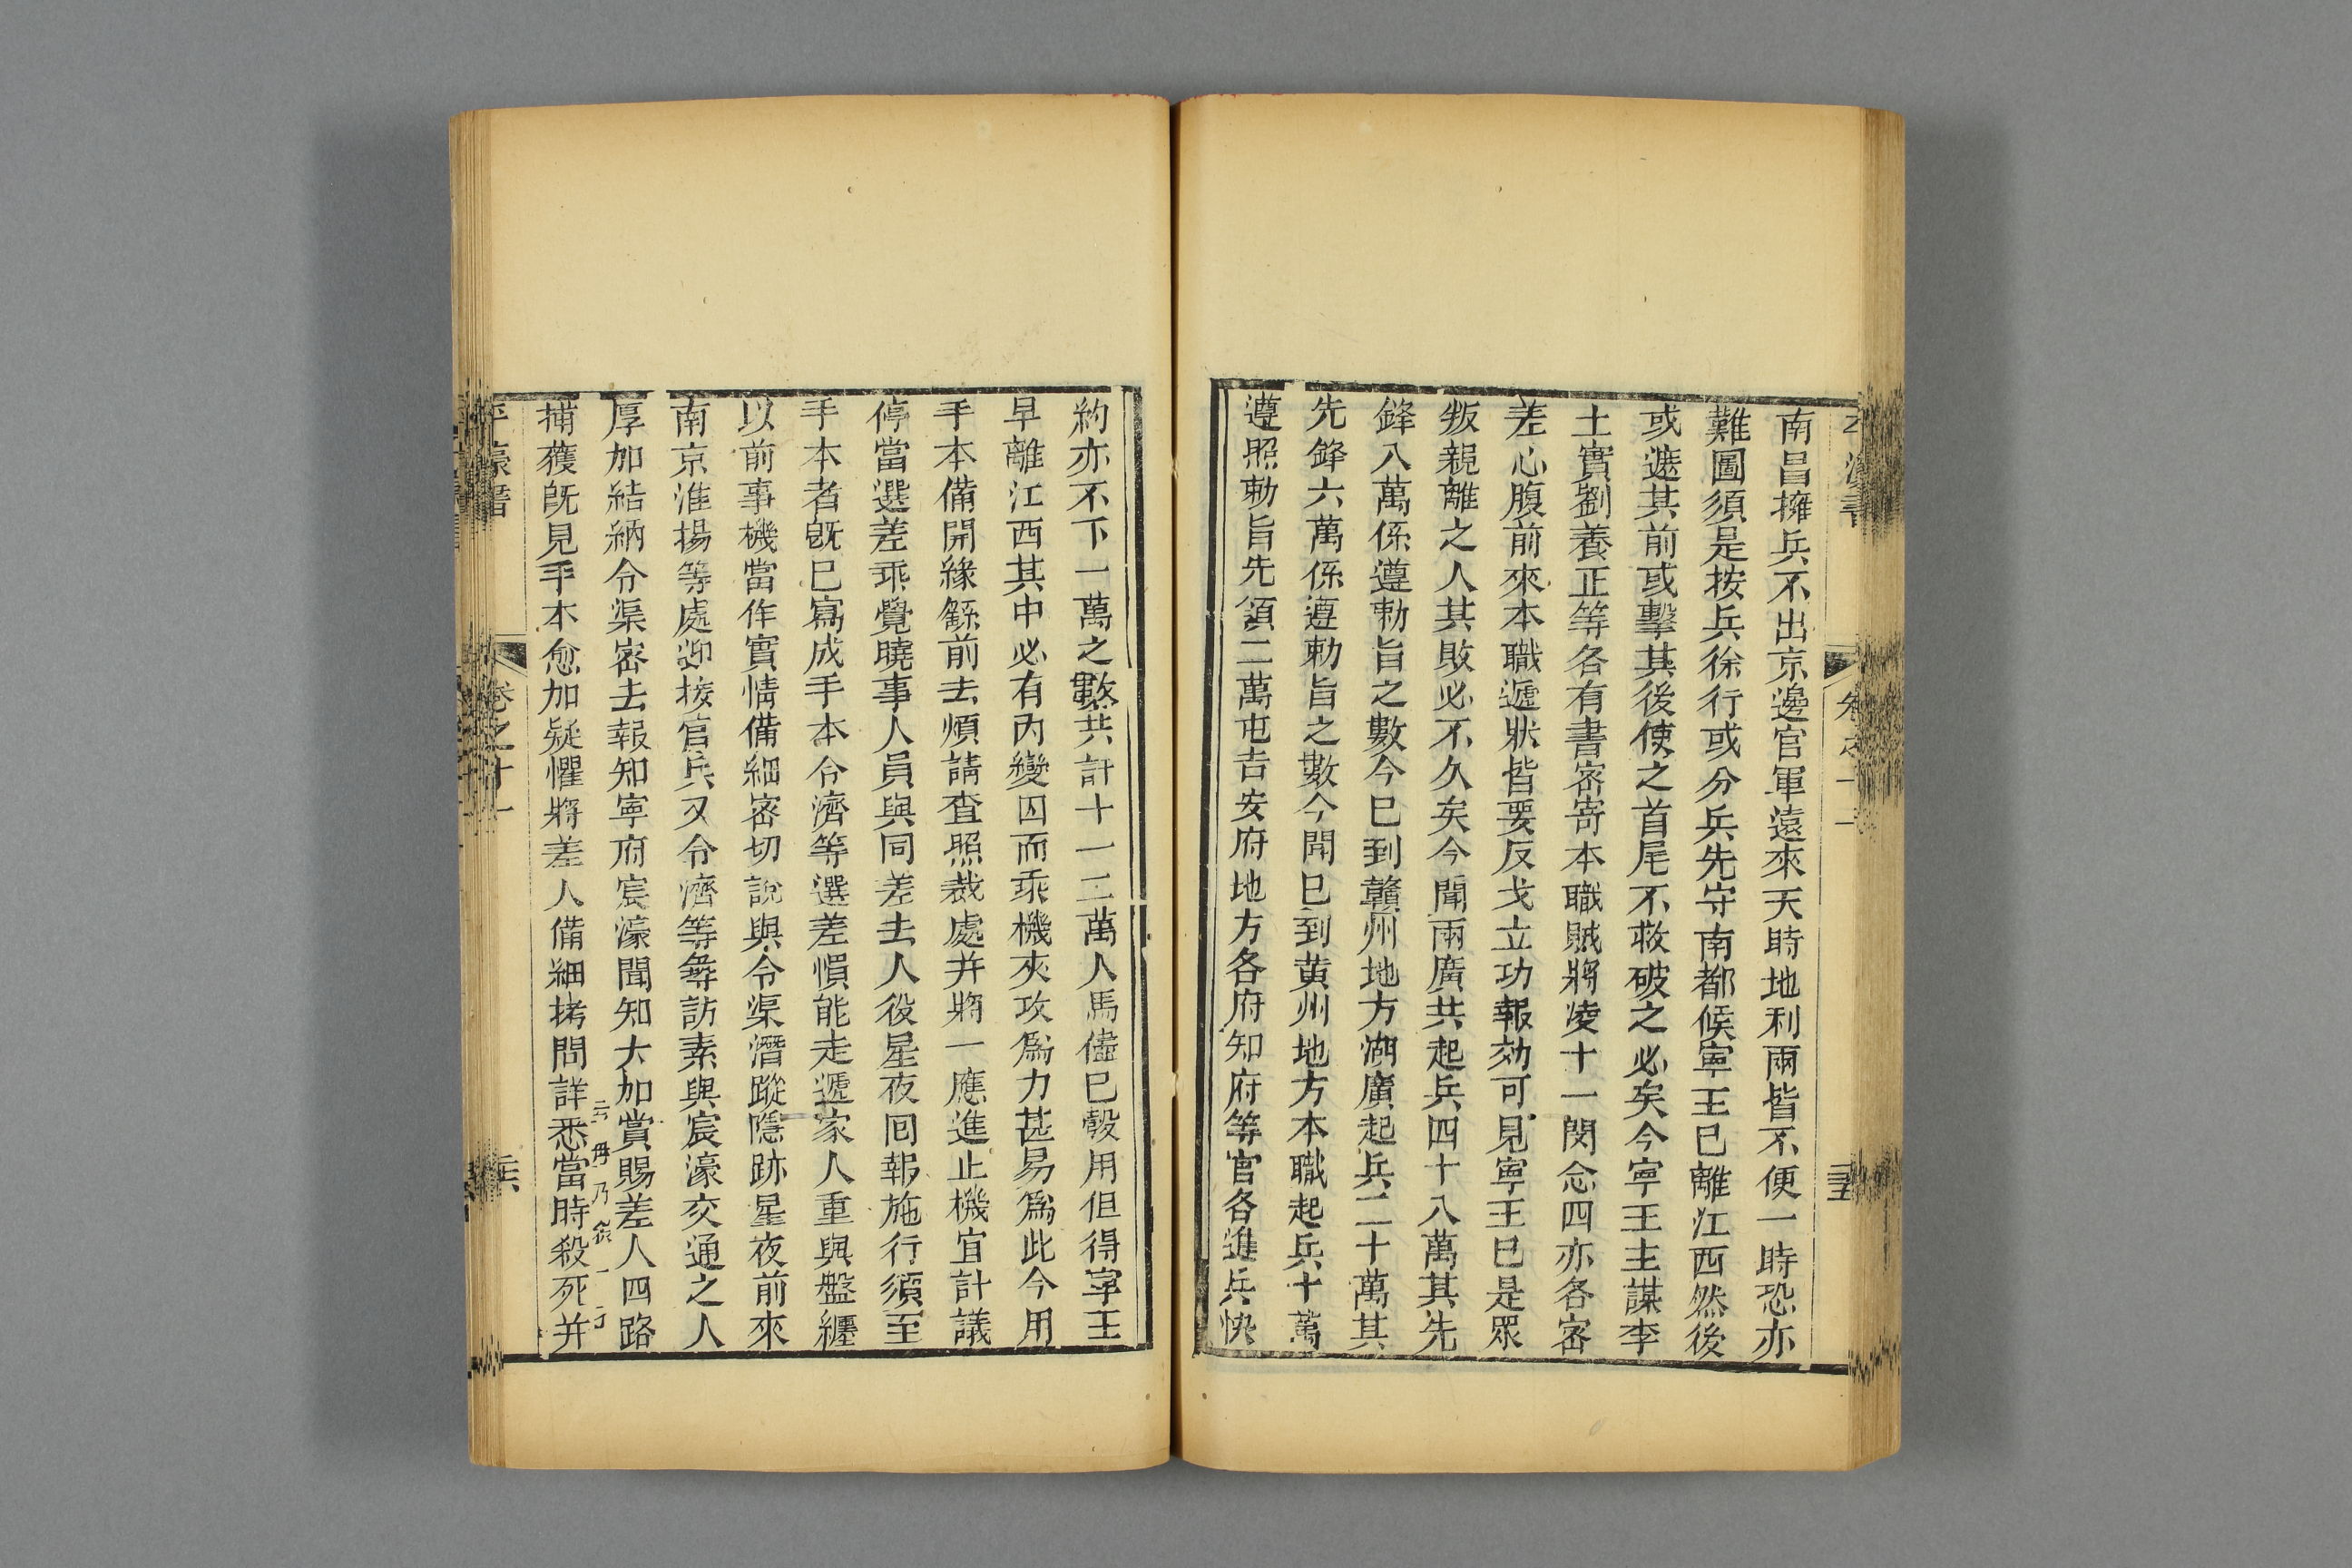 南昌擁兵不出京邊官軍遠來天時地利兩皆不便一時恐亦
難圖須是按兵徐行或分兵先守南都候寧王已離江西然後
或遮其前或擊其後使之首尾不救破之必矣今寧王主謀李
士實劉養正等各有書密寄本職賊將凌十一閔念四亦各密
差心腹前來本職遞狀皆要反戈立功報効可見寧王已是眾
叛親離之人其敗必不久矣今聞兩廣共起兵四十八萬其先
鋒八萬係遵勅旨之數今已到贛州地方湖廣起兵二十萬其
先鋒六萬係遵勅旨之數今聞已到黄州地方本職起兵十萬
遵照勅旨先領二萬屯吉安府地方各府知府等官各進兵快
約亦不下一萬之數共計十一二萬人馬儘已彀用但得寧王
早離江西其中必有内變因而乘機夾攻爲力甚易爲此今用
手本備開緣繇前去煩請查照裁處并將一應進止機宜計議
停當選差乖覺曉事人員與同差去人役星夜囘報施行須至
手本者旣已寫成手本令濟等選差慣能走遞家人重與盤纏
以前事機當作實情備細密切說與令渠潛蹤隱跡星夜前來
南京淮揚等處迎接官兵又令濟等尋訪素與宸濠交通之人
厚加結納令渠密去報知寧府宸濠聞知大加賞賜差人四路
捕獲旣見手本愈加疑懼將差人備細拷問詳悉當時殺死并
平濠書
卷之十一